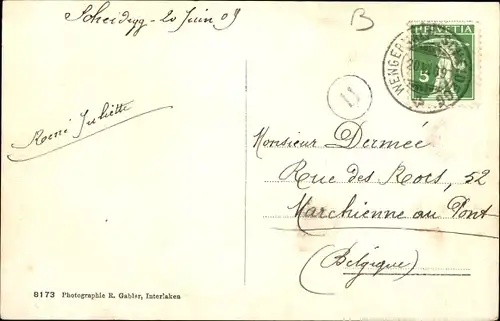 Scheidegg - 20 Juin 09
B
HELVETIA
5
WENGERNALP
20 VI 09
13
René Juliette
Monsieur Dermée
Rue des Rocs, 52
Marchienne au Pont
(Belgique)
8173 Photographie R. Gabler, Interlaken